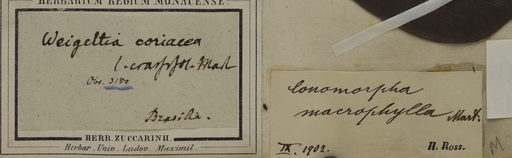 HERBARIUM REGIUM MONACENSE.
Weigeltia coriacea
l. crassifol. Mart
Obs. 3180
Brasilia.
HERB. ZUCCARINII.
Herbar. Univ. Ludov. Maximil.
Conomorpha
macrophylla Mart.
IX. 1902. H. Ross.
M